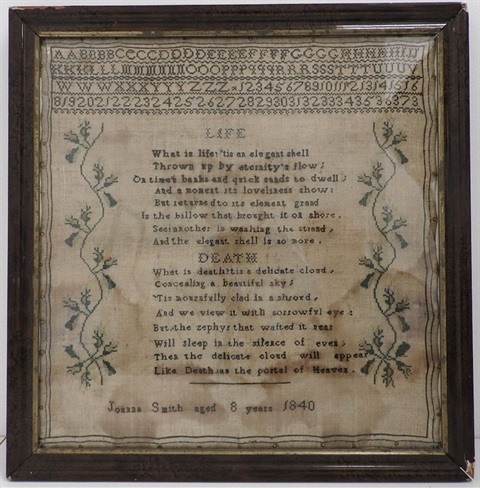 AABBBBCCCCDDDDEEEEFFFFGGGGHHHHIIJ
KKKKLLLMMMMMNNNOOOPPPQQQRRRSSSTTTUUUV
WWWXXXYYYZZZ&1234567891011121314151 6
181920212223242526272829303132333435363738
LIFE
What is life? 'tis an elegant shell
Thrown up by eternity's flow;
On time's banks and quick sands to dwell;
And a moment its loveliness show:
But returned to its element grand
Is the billow that brought it on shore,
See another is washing the strand,
And the elegant shell is no more.
DEATH
What is death? tis a delicate cloud,
Concealing a beautiful sky;
'Tis mournfully clad in a shroud,
And we view it with sorrowful eye:
But the zephyr that wafted it near
Will sleep in the silence of even;
Then the delicate cloud will appear
Like Death as the portal of Heaven.
Joanna Smith aged 8 years 1840